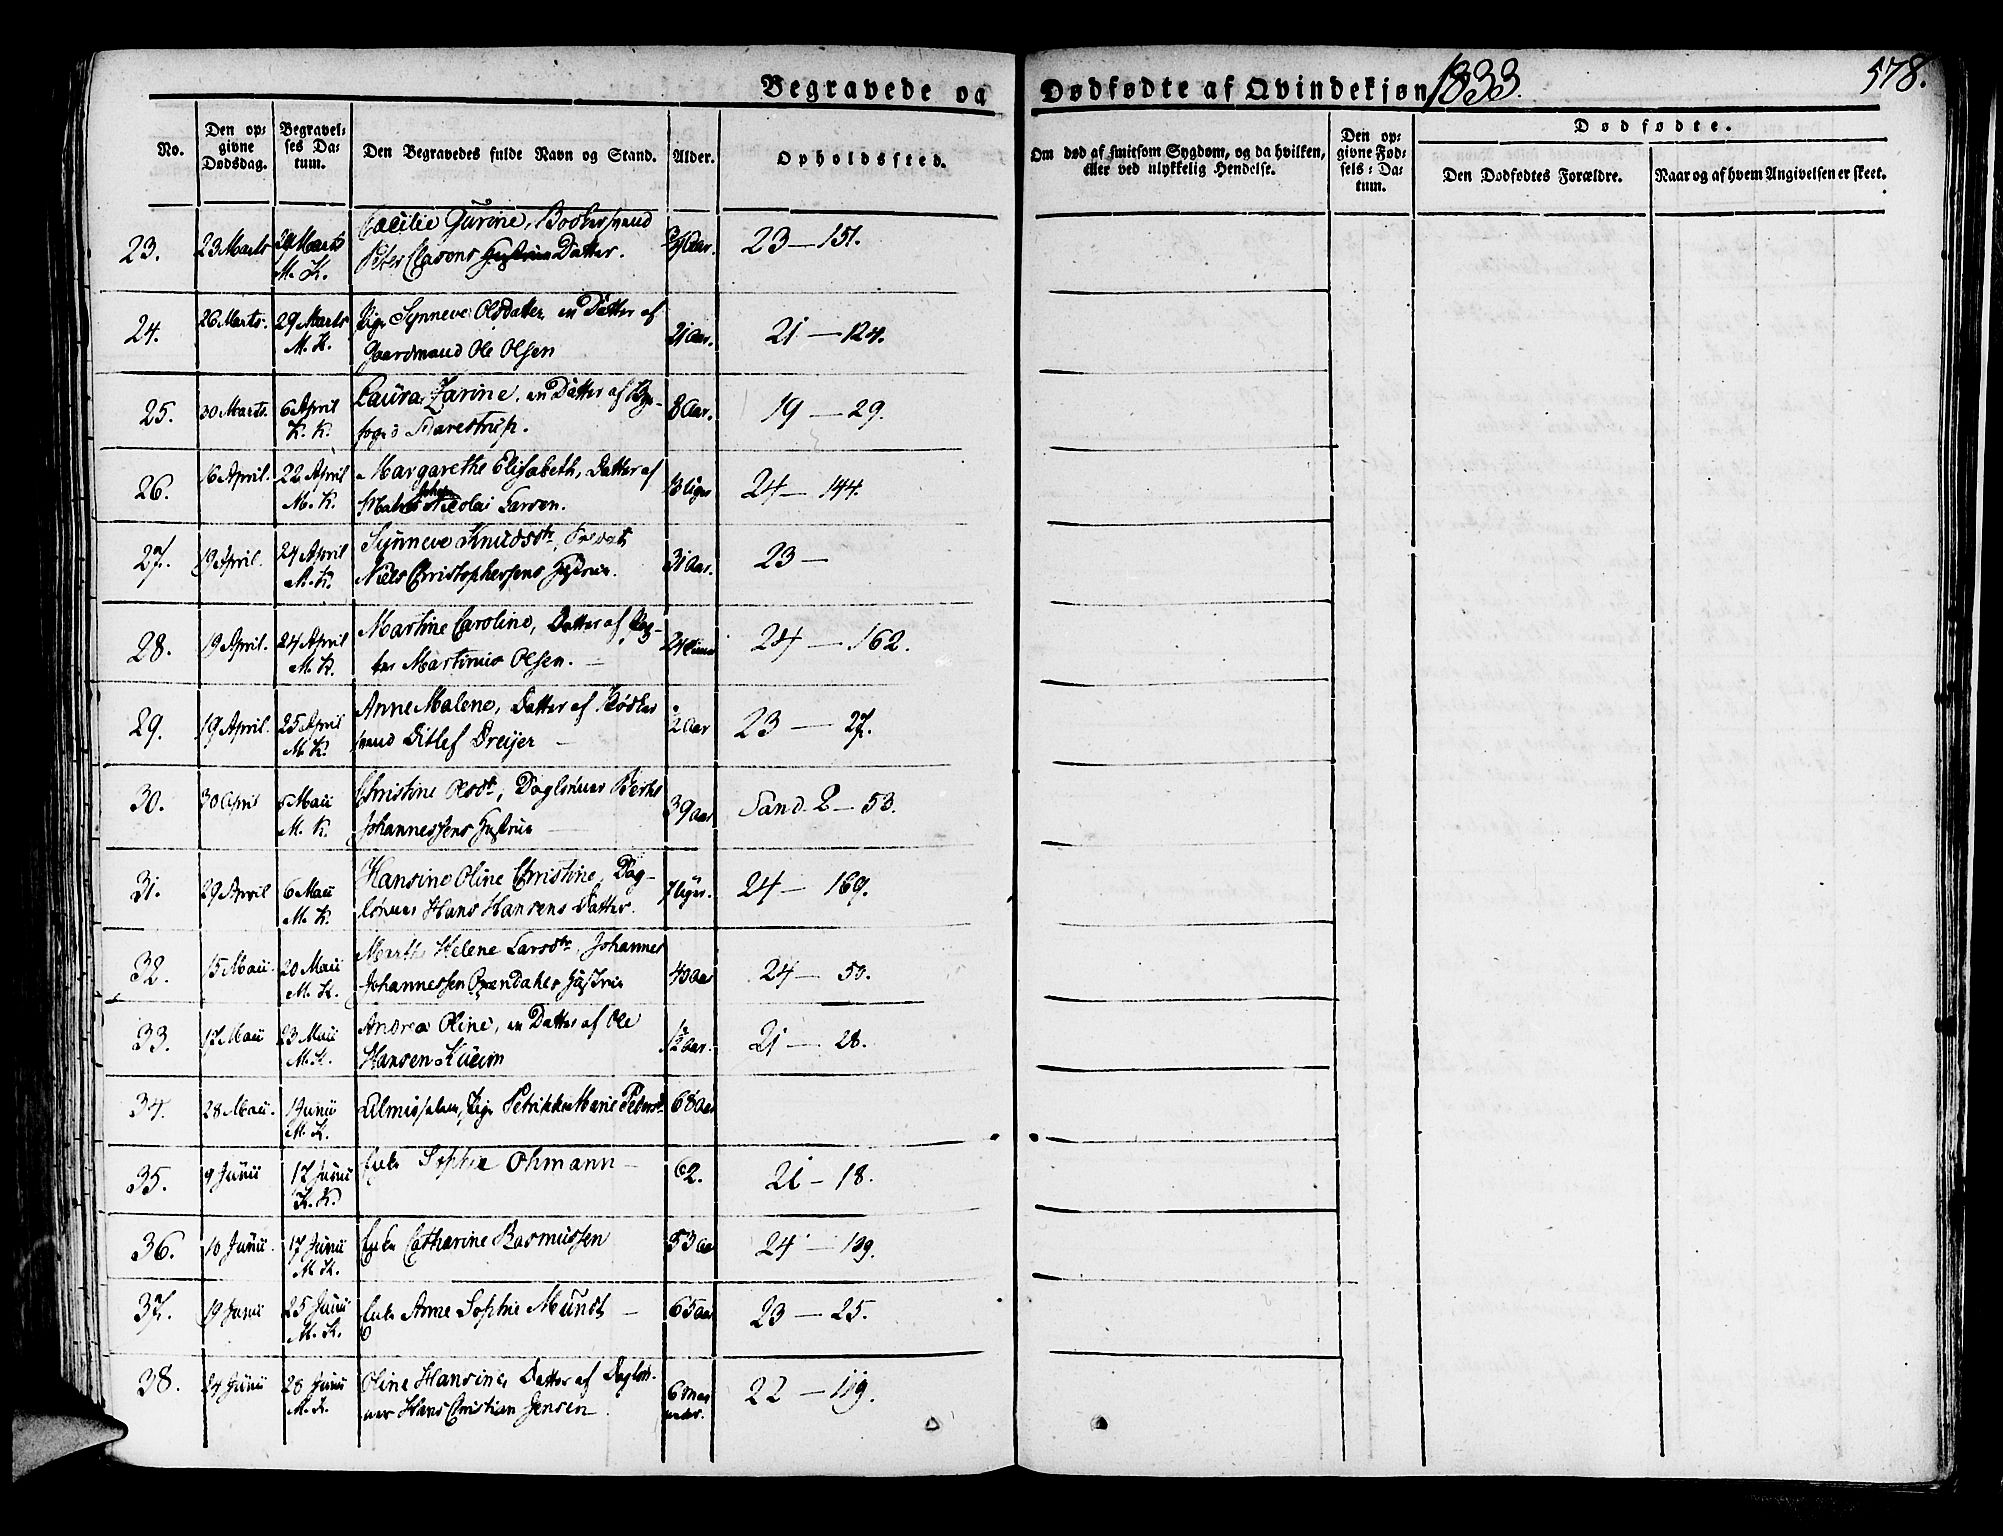 Begravede og Dødfødte af Qvindekjøn 1833. 578.
No. Den opgivne Dødsdag. Begravelses Datum. Den Begravedes fulde Navn og Stand. Alder. Opholdssted. Om død af smitsom Sygdom, og da hvilken, eller ved ulykkelig Hendelse. Den opgivne Fødsels-Datum. Dødfødte. Den Dødfødtes Forældre. Naar og af hvem Angivelsen er skeet.
23. 23 Marts 29 Marts Cæcilie Gurine, Bødkersvend Aar. 23 — 151.
M. K. Peter Clasons Datter.
24. 26 Marts. 29 Marts Pige Synneve Olsdatter, en Datter af 21 Aar. 21 — 124.
M. K. Gaardmand Ole Olsen
25. 30 Marts. 6 April Laura Zarine, en Datter af By- 8 Aar. 19 — 29.
K. K. foged
26. 16 April. 22 April Margarethe Elisabeth, Datter af 3 Uger 24 — 144.
M. K. Nicolai Larsen.
27. 19 April. 24 April Synneve Knudsdtr, 31 Aar. 23 —
M. K. Niels Christophersens Hustrue.
28. 19 April. 24 April Martine Caroline, Datter af 24 — 162.
M. K. Martinius Olsen. —
29. 19 April. 25 April Anne Malene, Datter af Bødker 2 Aar 23 — 27.
M. K. svend Ditlef Dreyer —
30. 30 April 5 Maii Christine Olsdt, Daglønner 39 Aar Sand. 2 — 53.
M. K. Johannessens Hustrue —
31. 29 April 6 Maii Hansine Oline Christine, Dag- 7 Uger. 24 — 169.
M. K. lønner Hans Hansens Datter.
32. 15 Maii. 20 Maii Marthe Helene Larsdtr, Johannes 40 Aar 24 — 50.
M. K. Johannessen Hustrue
33. 17 Maii 23 Maii Andrea Oline, en Datter af Ole 12 Aar. 21 — 28.
M. K. Hansen
34. 28 Maii. 1 Junii Almisselem, Pige Petrikke Marie Petersdt 68 Aar
M. K.
35. 9 Junii 17 Junii Enke Sophie Ohmann — 62. 21 — 18.
K. K.
36. 10 Junii. 17 Junii Enke Catharine Rasmussen 53 Aar 24 — 139.
M. K.
37. 19 Junii 25 Junii Enke Anne Sophie Mundt — 65 Aar 23 — 25.
M. K.
38. 24 Junii 28 Junii Oline Hansine, Datter af Dagløn- 6 Maa- 22 — 119.
M. K. ner Hans Christian Jensen neder.